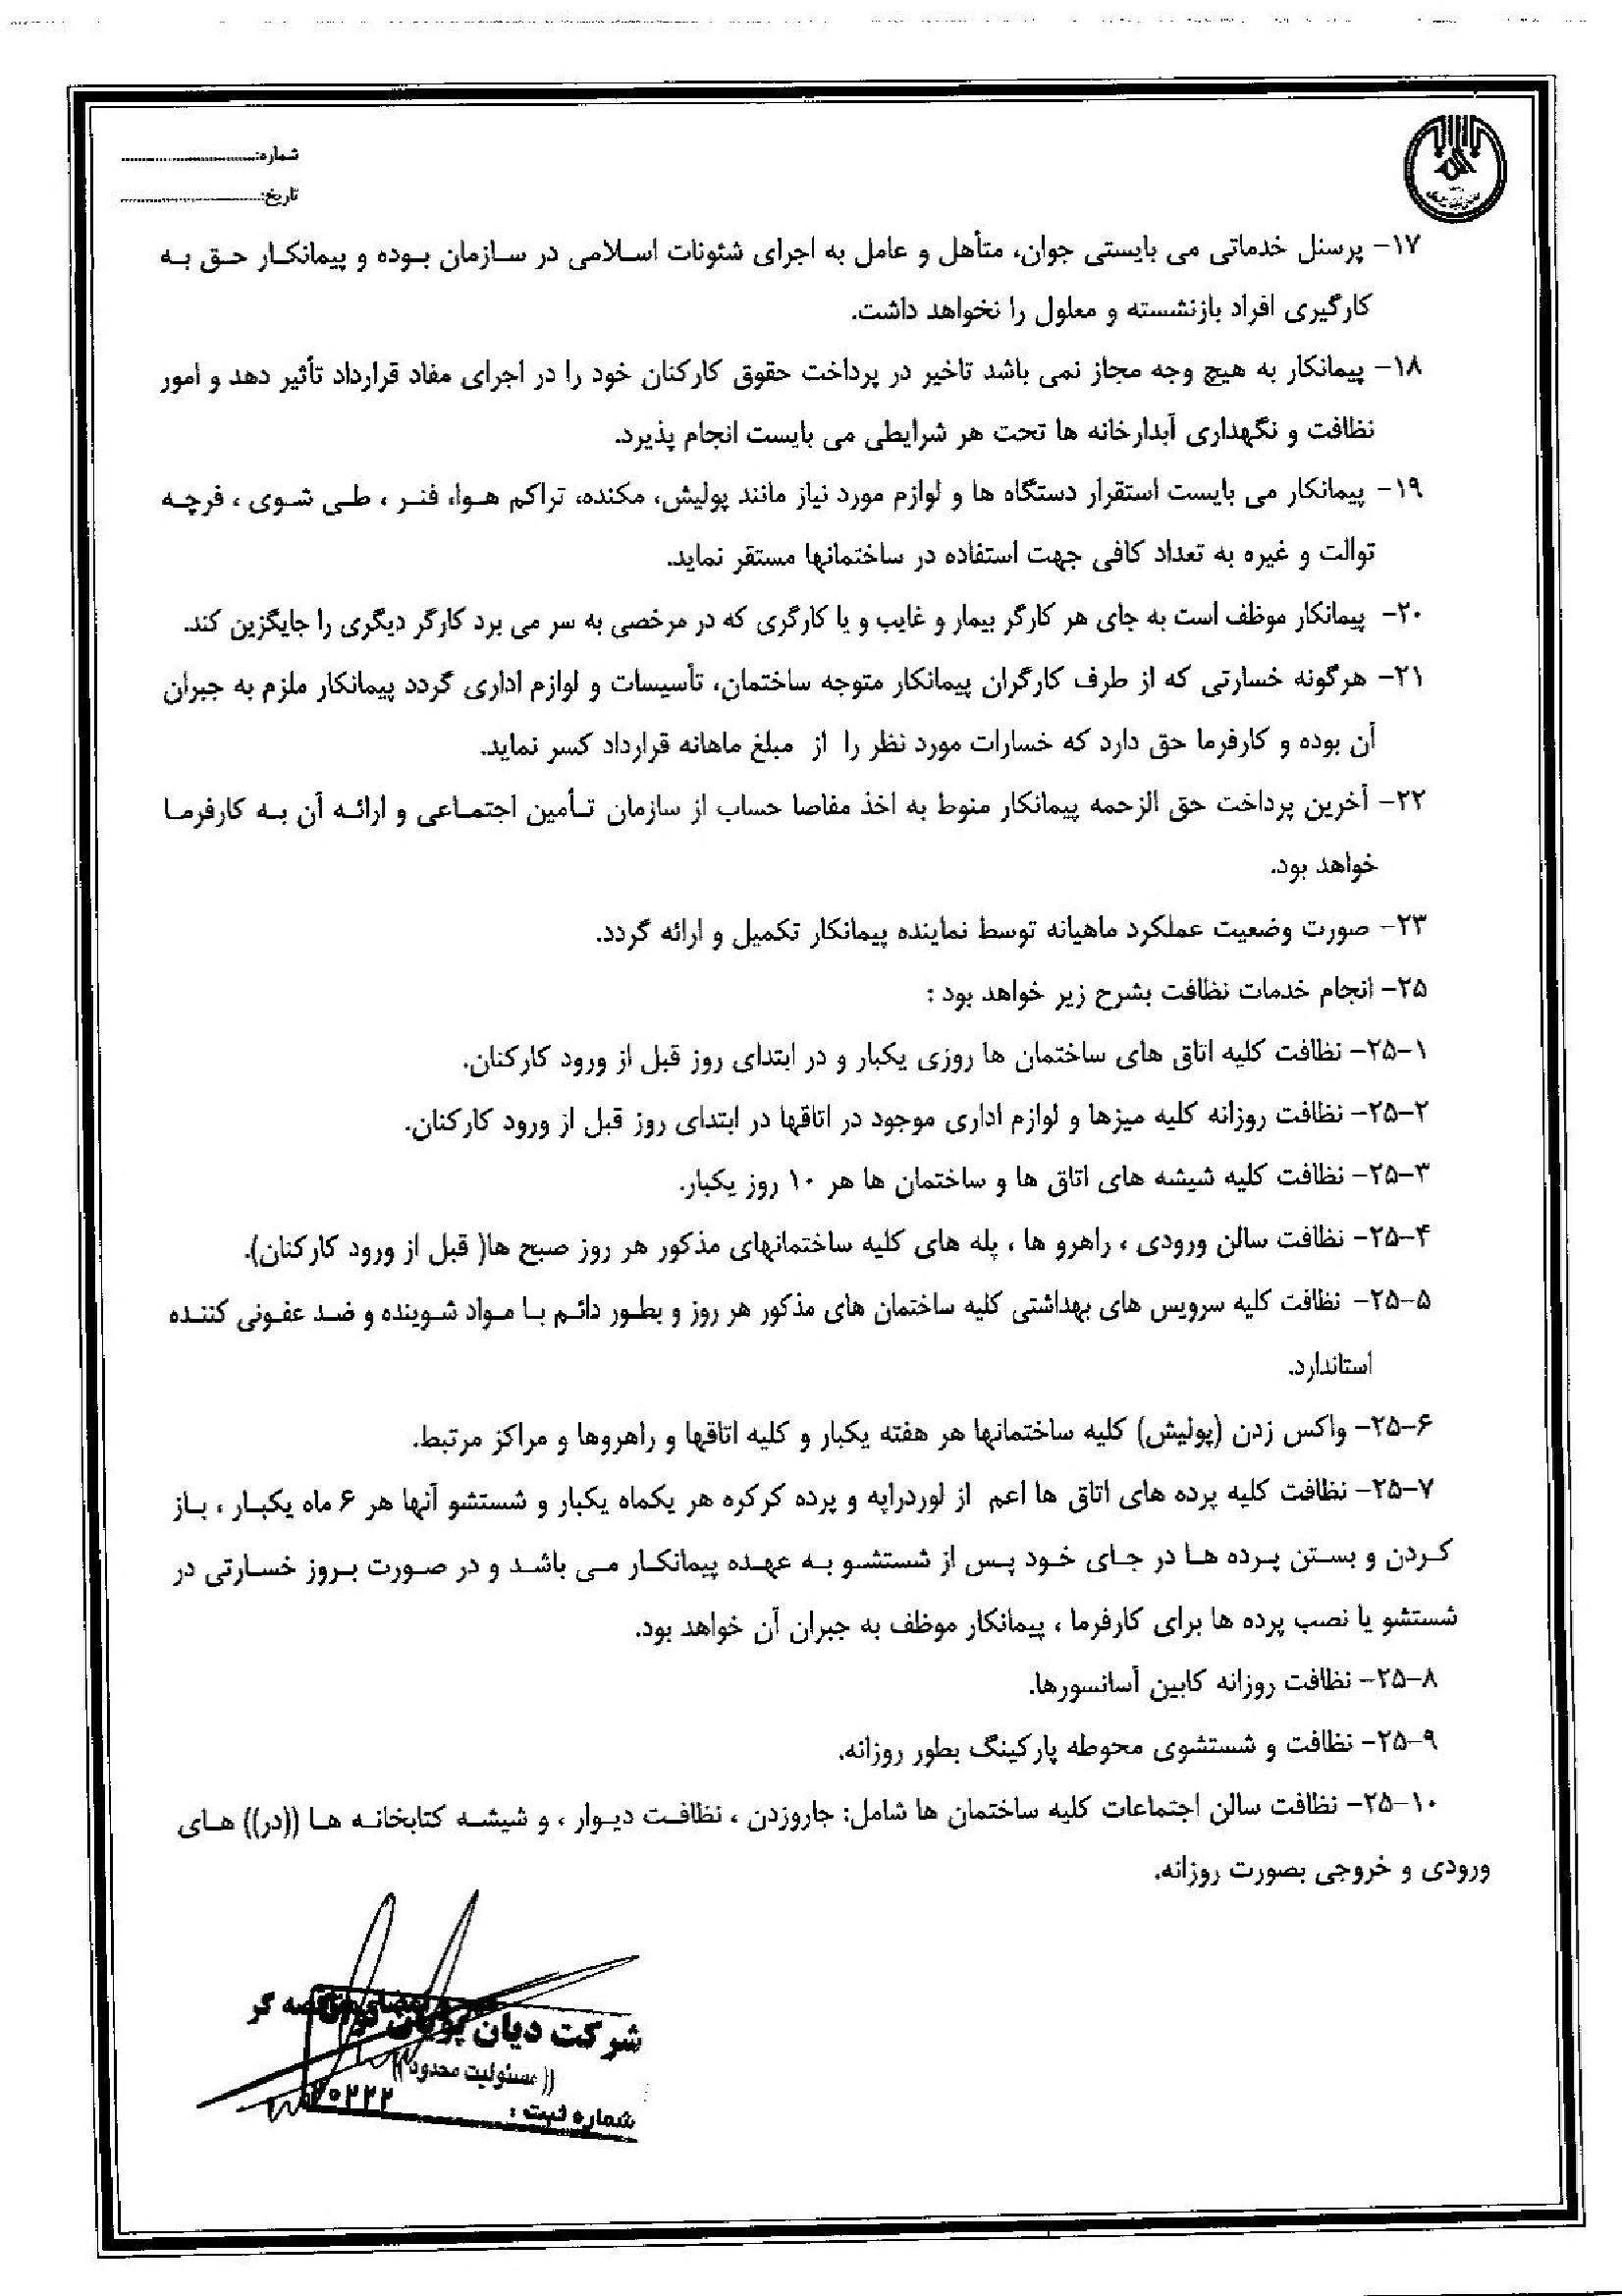 شماره:
تاریخ:
۱۷- پرسنل خدماتی می بایستی جوان، متأهل و عامل به اجرای شئونات اسلامی در سازمان بوده و پیمانکار حق به
کارگیری افراد بازنشسته و معلول را نخواهد داشت.
۱۸- پیمانکار به هیچ وجه مجاز نمی باشد تاخیر در پرداخت حقوق کارکنان خود را در اجرای مفاد قرارداد تأثیر دهد و امور
نظافت و نگهداری آبدارخانه ها تحت هر شرایطی می بایست انجام پذیرد.
۱۹- پیمانکار می بایست استقرار دستگاه ها و لوازم مورد نیاز مانند پولیش، مکنده، تراکم هوا، فنر ، طی شوی ، فرچه
توالت و غیره به تعداد کافی جهت استفاده در ساختمانها مستقر نماید.
۲۰- پیمانکار موظف است به جای هر کارگر بیمار و غایب و یا کارگری که در مرخصی به سر می برد کارگر دیگری را جایگزین کند.
۲۱- هرگونه خسارتی که از طرف کارگران پیمانکار متوجه ساختمان، تأسیسات و لوازم اداری گردد پیمانکار ملزم به جبران
آن بوده و کارفرما حق دارد که خسارات مورد نظر را از مبلغ ماهانه قرارداد کسر نماید.
۲۲- آخرین پرداخت حق الزحمه پیمانکار منوط به اخذ مفاصا حساب از سازمان تأمین اجتماعی و ارائه آن به کارفرما
خواهد بود.
۲۳- صورت وضعیت عملکرد ماهیانه توسط نماینده پیمانکار تکمیل و ارائه گردد.
۲۵- انجام خدمات نظافت بشرح زیر خواهد بود :
۲۵-۱- نظافت کلیه اتاق های ساختمان ها روزی یکبار و در ابتدای روز قبل از ورود کارکنان.
۲۵-۲- نظافت روزانه کلیه میزها و لوازم اداری موجود در اتاقها در ابتدای روز قبل از ورود کارکنان.
۲۵-۳- نظافت کلیه شیشه های اتاق ها و ساختمان ها هر ۱۰ روز یکبار.
۲۵-۴- نظافت سالن ورودی ، راهرو ها ، پله های کلیه ساختمانهای مذکور هر روز صبح ها( قبل از ورود کارکنان).
۲۵-۵- نظافت کلیه سرویس های بهداشتی کلیه ساختمان های مذکور هر روز و بطور دائم با مواد شوینده و ضد عفونی کننده
استاندارد.
۲۵-۶- واکس زدن (پولیش) کلیه ساختمانها هر هفته یکبار و کلیه اتاقها و راهروها و مراکز مرتبط.
۲۵-۷- نظافت کلیه پرده های اتاق ها اعم از لوردراپه و پرده کرکره هر یکماه یکبار و شستشو آنها هر ۶ ماه یکبار ، باز
کردن و بستن پرده ها در جای خود پس از شستشو به عهده پیمانکار می باشد و در صورت بروز خسارتی در
شستشو یا نصب پرده ها برای کارفرما ، پیمانکار موظف به جبران آن خواهد بود.
۲۵-۸- نظافت روزانه کابین آسانسورها.
۲۵-۹- نظافت و شستشوی محوطه پارکینگ بطور روزانه.
۲۵-۱۰- نظافت سالن اجتماعات کلیه ساختمان ها شامل: جاروزدن ، نظافت دیوار ، و شیشه کتابخانه ها ((در)) های
ورودی و خروجی بصورت روزانه.
شرکت دیان پویان
(( مسئولیت محدود ))
شماره ثبت :